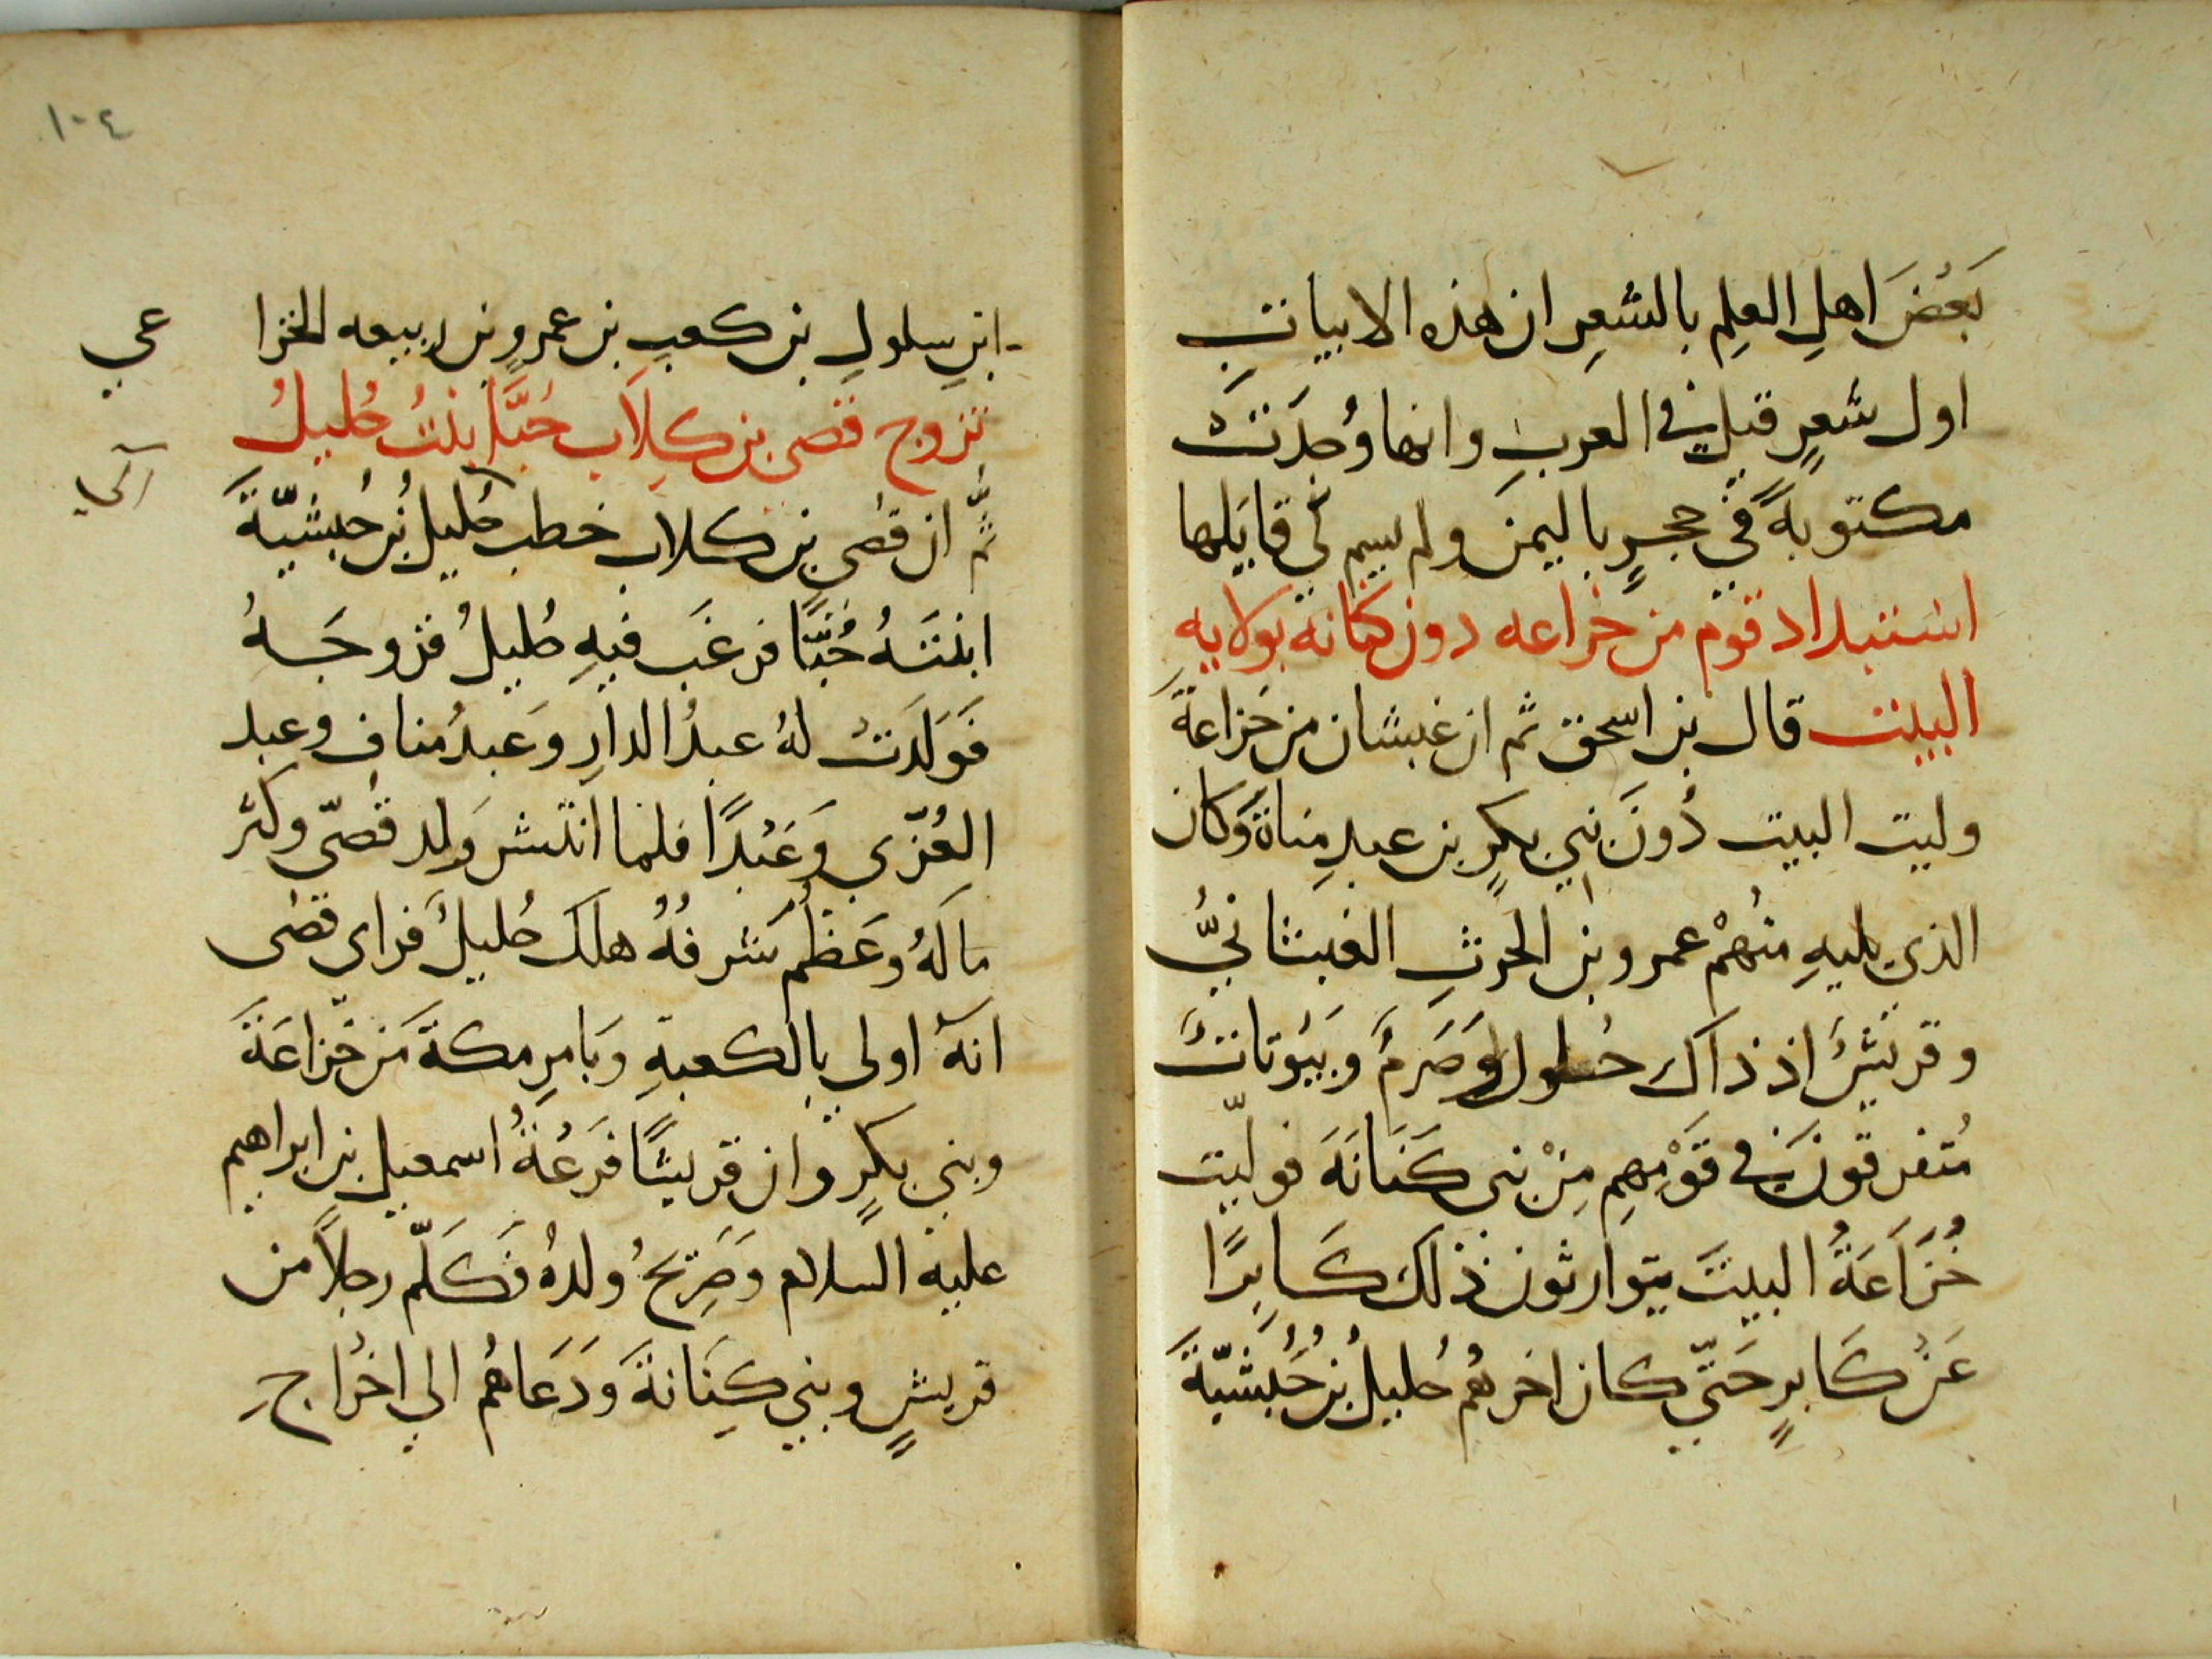 بَعْضَ اهلِ العلِمِ بالشعِرِ ان هذه الابيات
اول شعرٍ قيل في العربِ وانها وُجدَتْ
مكتوبةً في حجرٍ باليمن ولم يسم لي قايلها
استبداد قوم من خزاعه دون كنانة بولايه
البيت قال بن اسحق ثم ان غبشان من خزاعةَ
وليت البيت دُونَ بني بكرٍ بن عبدِ مناةَ وكان
الذي يليهِ منهُمْ عمرو بن الحرثِ الغبشانيُّ
وقريشٌ اذ ذاك حُلول وَصَرمٌ وبَيُوتاتٌ
مُتفرقونَ في قَوْمِهِم مِنْ بني كَنَانَةَ فوليّت
خُزَاعَةُ البيتَ يتوارثون ذلك كَابِرًا
عَنْ كَابرٍ حَتّي كان اخرهُم حُليلُ بْنُ حُبُشيّةَ
ابنِ سلولِ بن كعبِ بن عمرِو بن ربيعه الخزا عي
تزوج قصى بن كِلاَب حُبَّا بنتُ حُليلُ
ثُمَّ ان قصَي بن كلاب خطب حُليل بْن حُبشيّةَ
ابنتَهُ حُبَّا فرغَب فيهِ حُليلُ فزوجَهُ
فَوَلَدَتْ لهُ عبدُ الدارِ وَعبدُ منافٍ وعبد
العُزّي وَعَبْدًا فلما انتشر وَلد قُصيّ وكثر
مالهُ وعَظُم شرفُهُ هلك حُليلُ فراي قصى
انهُ اولى بالكعبةِ وَبامرِ مكةَ من خزاعَةَ
وبني بكرٍ وان قريشًا فرَعُةُ اسمعيل بن ابراهيم
عليه السلام وَصَرِيحُ ولدهُ فَكَلّم رجلاً من
قريشٍ وبني كِنَانةَ وَدَعَاهُم الي اخْراجِ
١٠٤